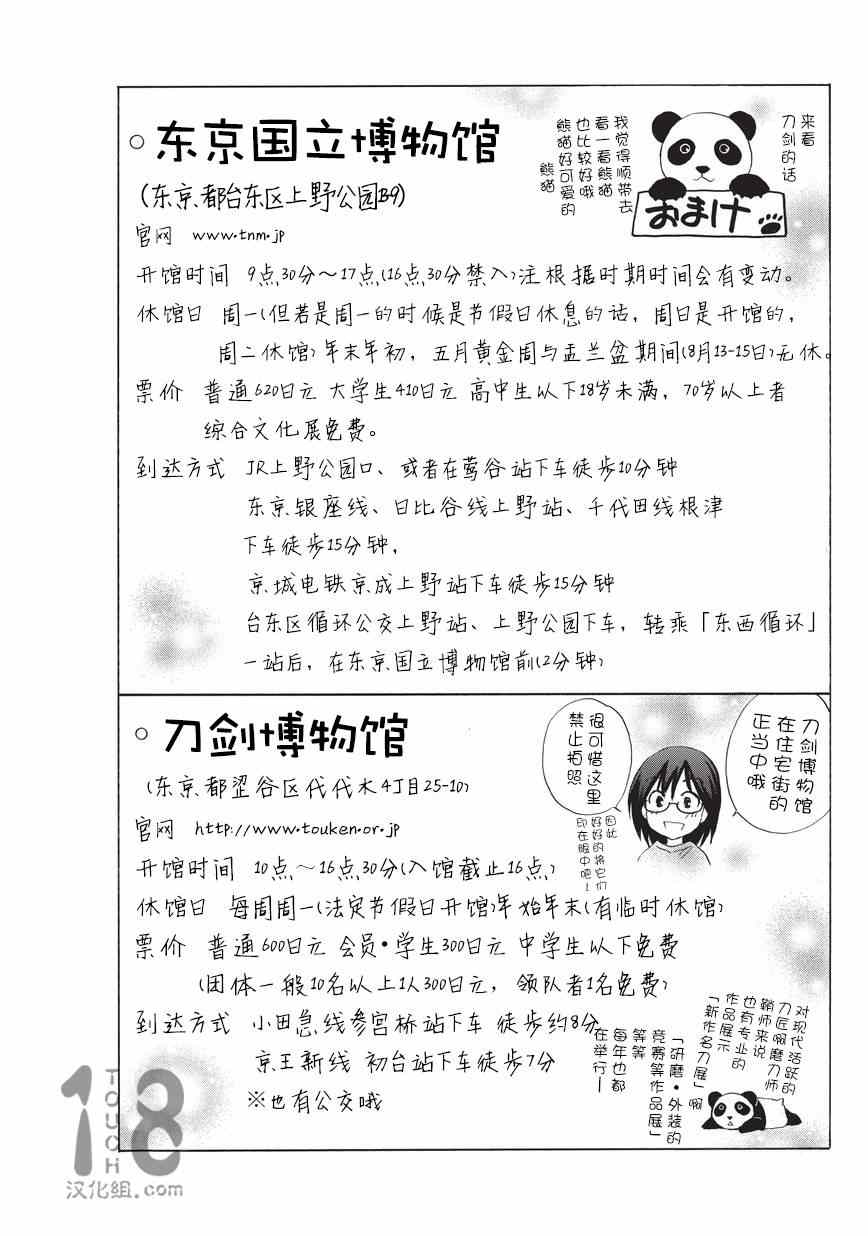 ○ 东京国立博物馆
(东京都台东区上野公园13-9)
官网 www.tnm.jp
来看
刀剑的话
我觉得顺带去
看一看熊猫
也比较好哦
熊猫好可爱的
熊猫
おまけ
开馆时间 9点30分～17点(16点30分禁入)注根据时期时间会有变动。
休馆日 周一(但若是周一的时候是节假日休息的话，周日是开馆的，
周二休馆)年末年初，五月黄金周与盂兰盆期间(8月13-15日)无休。
票价 普通620日元 大学生410日元 高中生以下18岁未满，70岁以上者
综合文化展免费。
到达方式 JR上野公园口、或者在莺谷站下车徒步10分钟
东京银座线、日比谷线上野站、千代田线根津
下车徒步15分钟，
京城电铁京成上野站下车徒步15分钟
台东区循环公交上野站、上野公园下车，转乘「东西循环」
一站后，在东京国立博物馆前(2分钟)
○ 刀剑博物馆
(东京都涩谷区代代木4丁目25-10)
官网 http://www.touken.or.jp
刀剑博物馆
在住宅街的
正当中哦
很可惜这里
禁止拍照
因此
好好的将它们
印在眼中吧！
开馆时间 10点～16点30分(入馆截止16点)
休馆日 每周周一(法定节假日开馆)年始年末(有临时休馆)
票价 普通600日元 会员·学生300日元 中学生以下免费
(团体一般10名以上1人300日元，领队者1名免费)
到达方式 小田急线参宫桥站下车 徒步约8分
京王新线 初台站下车徒步7分
※也有公交哦
对现代活跃的
刀匠啊磨刀师
鞘师来说
也有专业的
作品展示
「新作名刀展」啊
「研磨·外装的
竞赛等作品展」
等等
每年也都
在举行！
18
TOUCH
汉化组.com